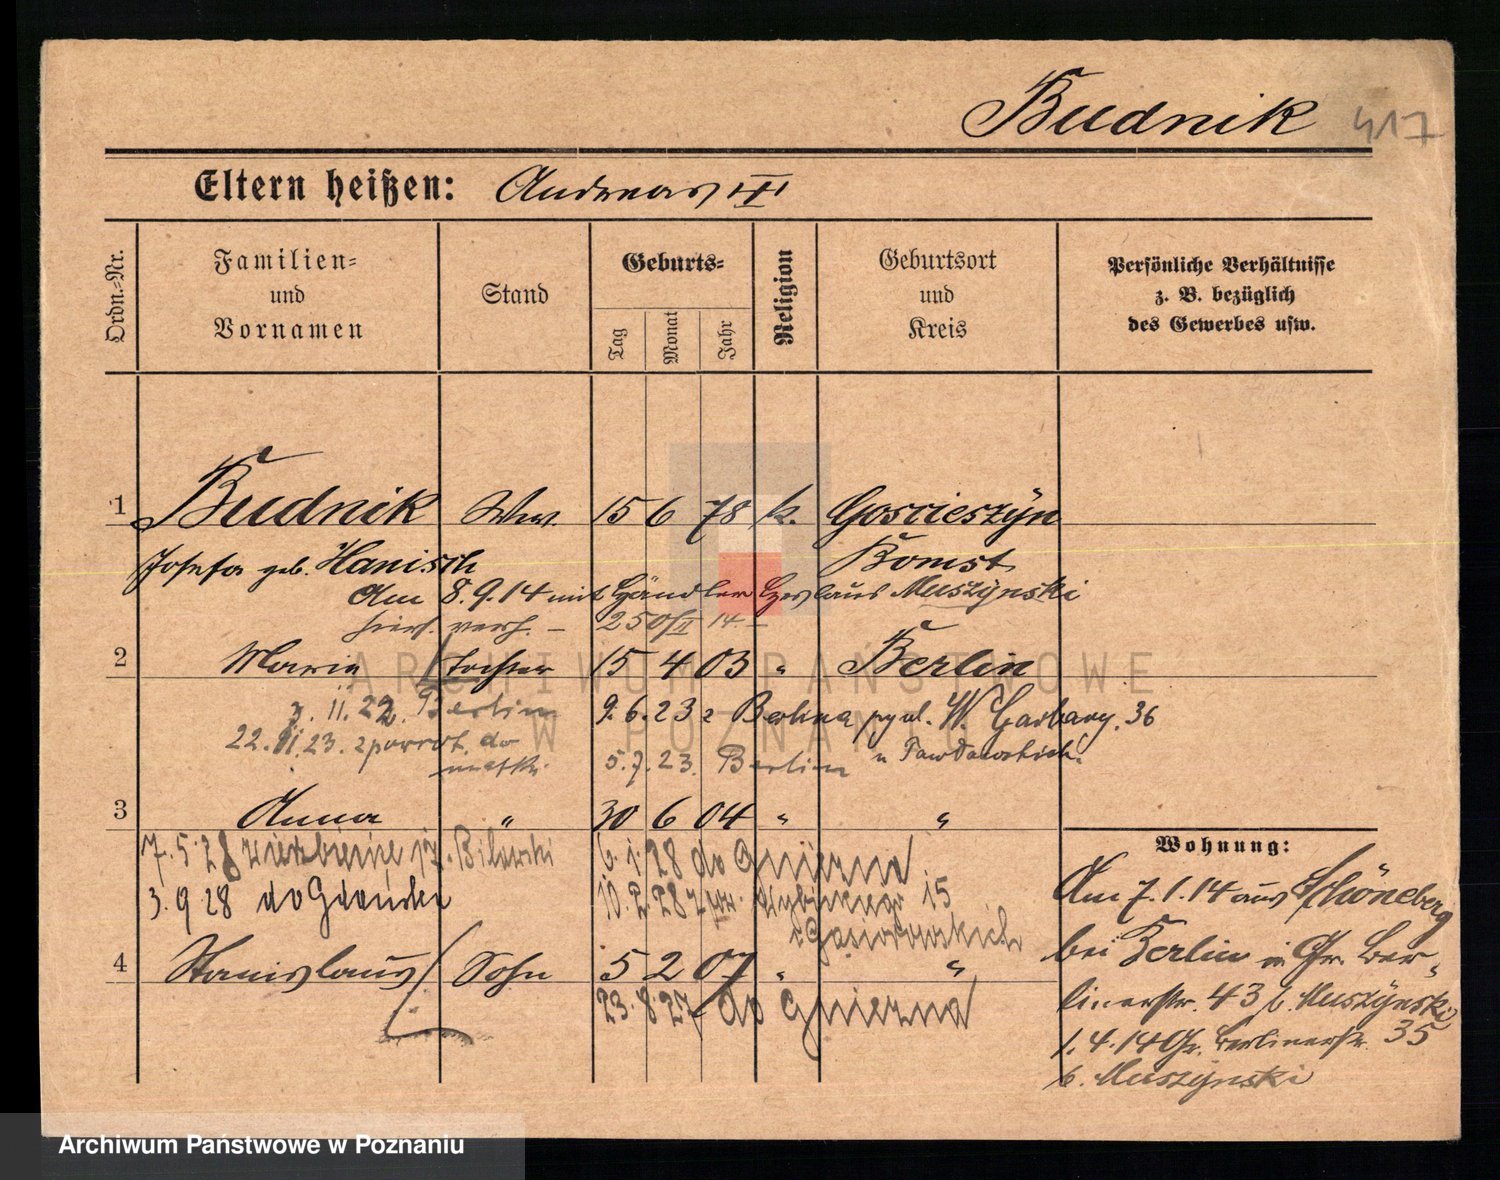 Budnik 417
Eltern heißen: Andreas III
Ordn.-Nr.
Familien-
und
Vornamen
Stand
Geburts-
Tag
Monat
Jahr
Religion
Geburtsort
und
Kreis
Persönliche Verhältnisse
z. B. bezüglich
des Gewerbes usw.
1 Budnik Ww. 15 6 78 k. Goscieszyn
Josefa geb. Hanisch Bomst
Am 8.9.14 mit Händler Muszynski
hier. verh. –
2 Maria Tochter 15 4 03 " Berlin
3. 11. 22. Berlin 9. 6. 23 z Berlina W. Garbary. 36
22. 11. 23. z powrot. do
matki. 5. 7. 23. Berlin
3 Anna " 30 6 04 " "
7. 5. 28 Bilewski 6. 1. 28 do Gniezna
3. 9 28 do Gdańska 10. 2. 28 15
4 Stanislaus Sohn 5 2 07 " "
23. 8. 27 do Gniezna
Wohnung:
Am 7. 1. 14 aus Schöneberg
bei Berlin in Gr. Ber-
linerstr. 43 b. Muszynski
1. 4. 14 Gr. Berlinerstr. 35
b. Muszynski
ARCHIWUM PAŃSTWOWE
W POZNANIU
Archiwum Państwowe w Poznaniu